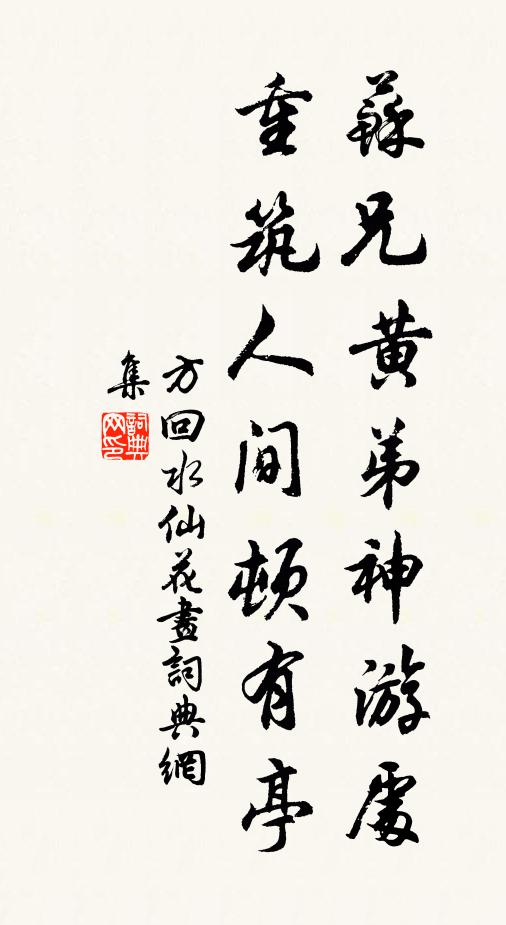 蘇兄黃弟神游處
重筑人間頓有亭
方回水仙花畫詞典網
集
詞典網印